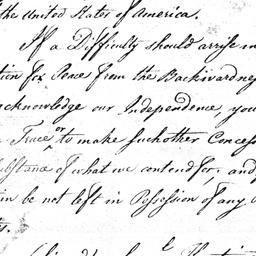 the United States of America.
If a Difficulty should arise in
tion for Peace from the Backwardness
acknowledge our Independence, you
a Truce or to make such other Concess
ubstance of what we contend for; and
in be not left in Possession of any